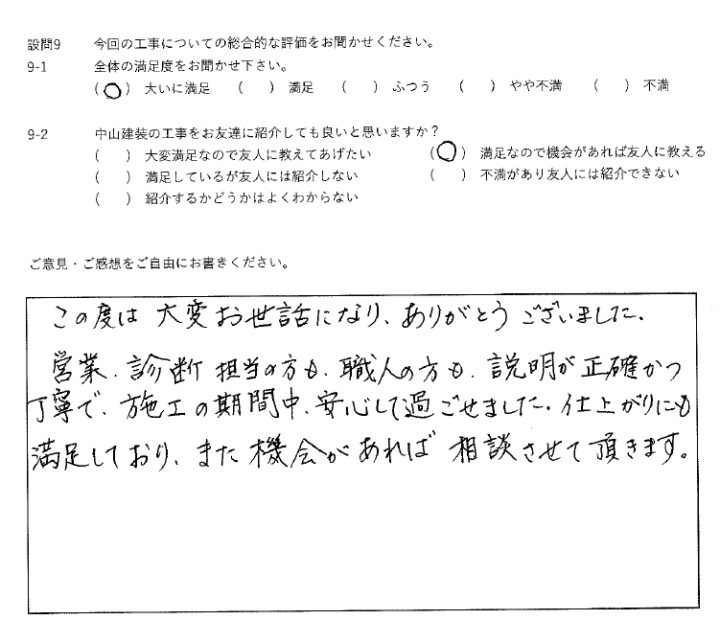 設問9 今回の工事についての総合的な評価をお聞かせください。
9-1 全体の満足度をお聞かせ下さい。
(○) 大いに満足 ( ) 満足 ( ) ふつう ( ) やや不満 ( ) 不満
9-2 中山建装の工事をお友達に紹介しても良いと思いますか?
( ) 大変満足なので友人に教えてあげたい (○) 満足なので機会があれば友人に教える
( ) 満足しているが友人には紹介しない ( ) 不満があり友人には紹介できない
( ) 紹介するかどうかはよくわからない
ご意見・ご感想をご自由にお書きください。
この度は大変お世話になり、ありがとうございました。
営業、診断担当の方も、職人の方も、説明が正確かつ
丁寧で、施工の期間中、安心して過ごせました。仕上がりにも
満足しており、また機会があれば相談させて頂きます。